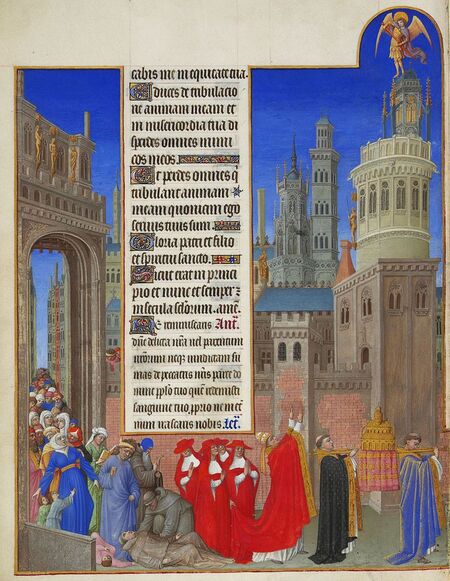 cabis me in equitate tua.
Educes de tribulatio
ne animam meam et
in misericordia tua di
sperdes omnes inimi
cos meos.
Et perdes omnes q
tribulant animam
meam quoniam ego
servus tuus sum.
Gloria patri et filio
et spiritui sancto.
Sicut erat in princi
pio et nunc et semper ⁊
in secula sclorum. amē.
Ne reminiscaris Ant.
dñe delicta nrā vel parentum
nrōrum neqʒ vindictam su
mas de peccatis nrīs parce do
mine pplō tuo quē redemisti
sanguine tuo pprio ne in et
num irascaris nobis.